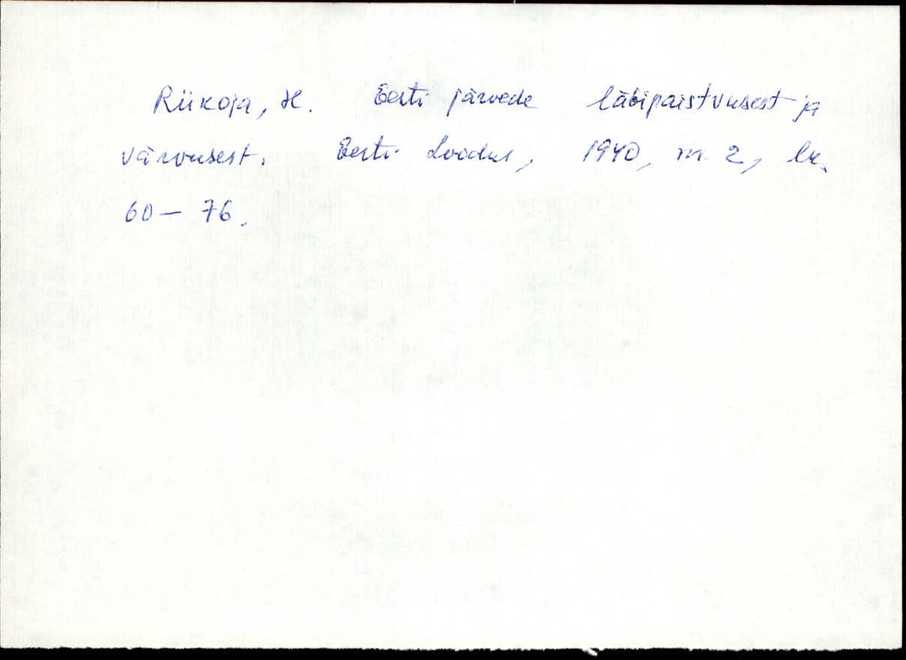 Riikoja, H. Eesti järvede läbipaistvusest ja
värvusest. Eesti Loodus, 1940, nr. 2, lk.
60 — 76.